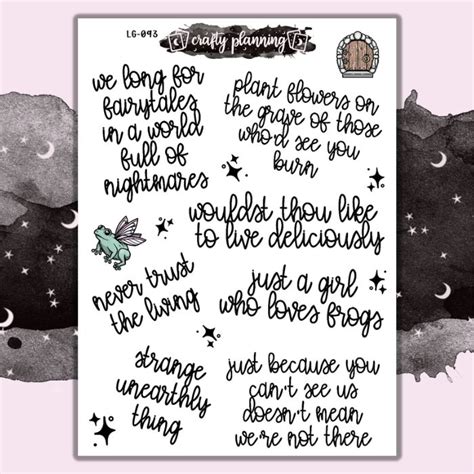 LG-093
crafty planning
we long for
fairytales
in a world
full of
nightmares
plant flowers on
the grave of those
who'd see you
burn
wouldst thou like
to live deliciously
never trust
the living
just a girl
who loves frogs
strange
unearthly
thing
just because you
can't see us
doesn't mean
we're not there